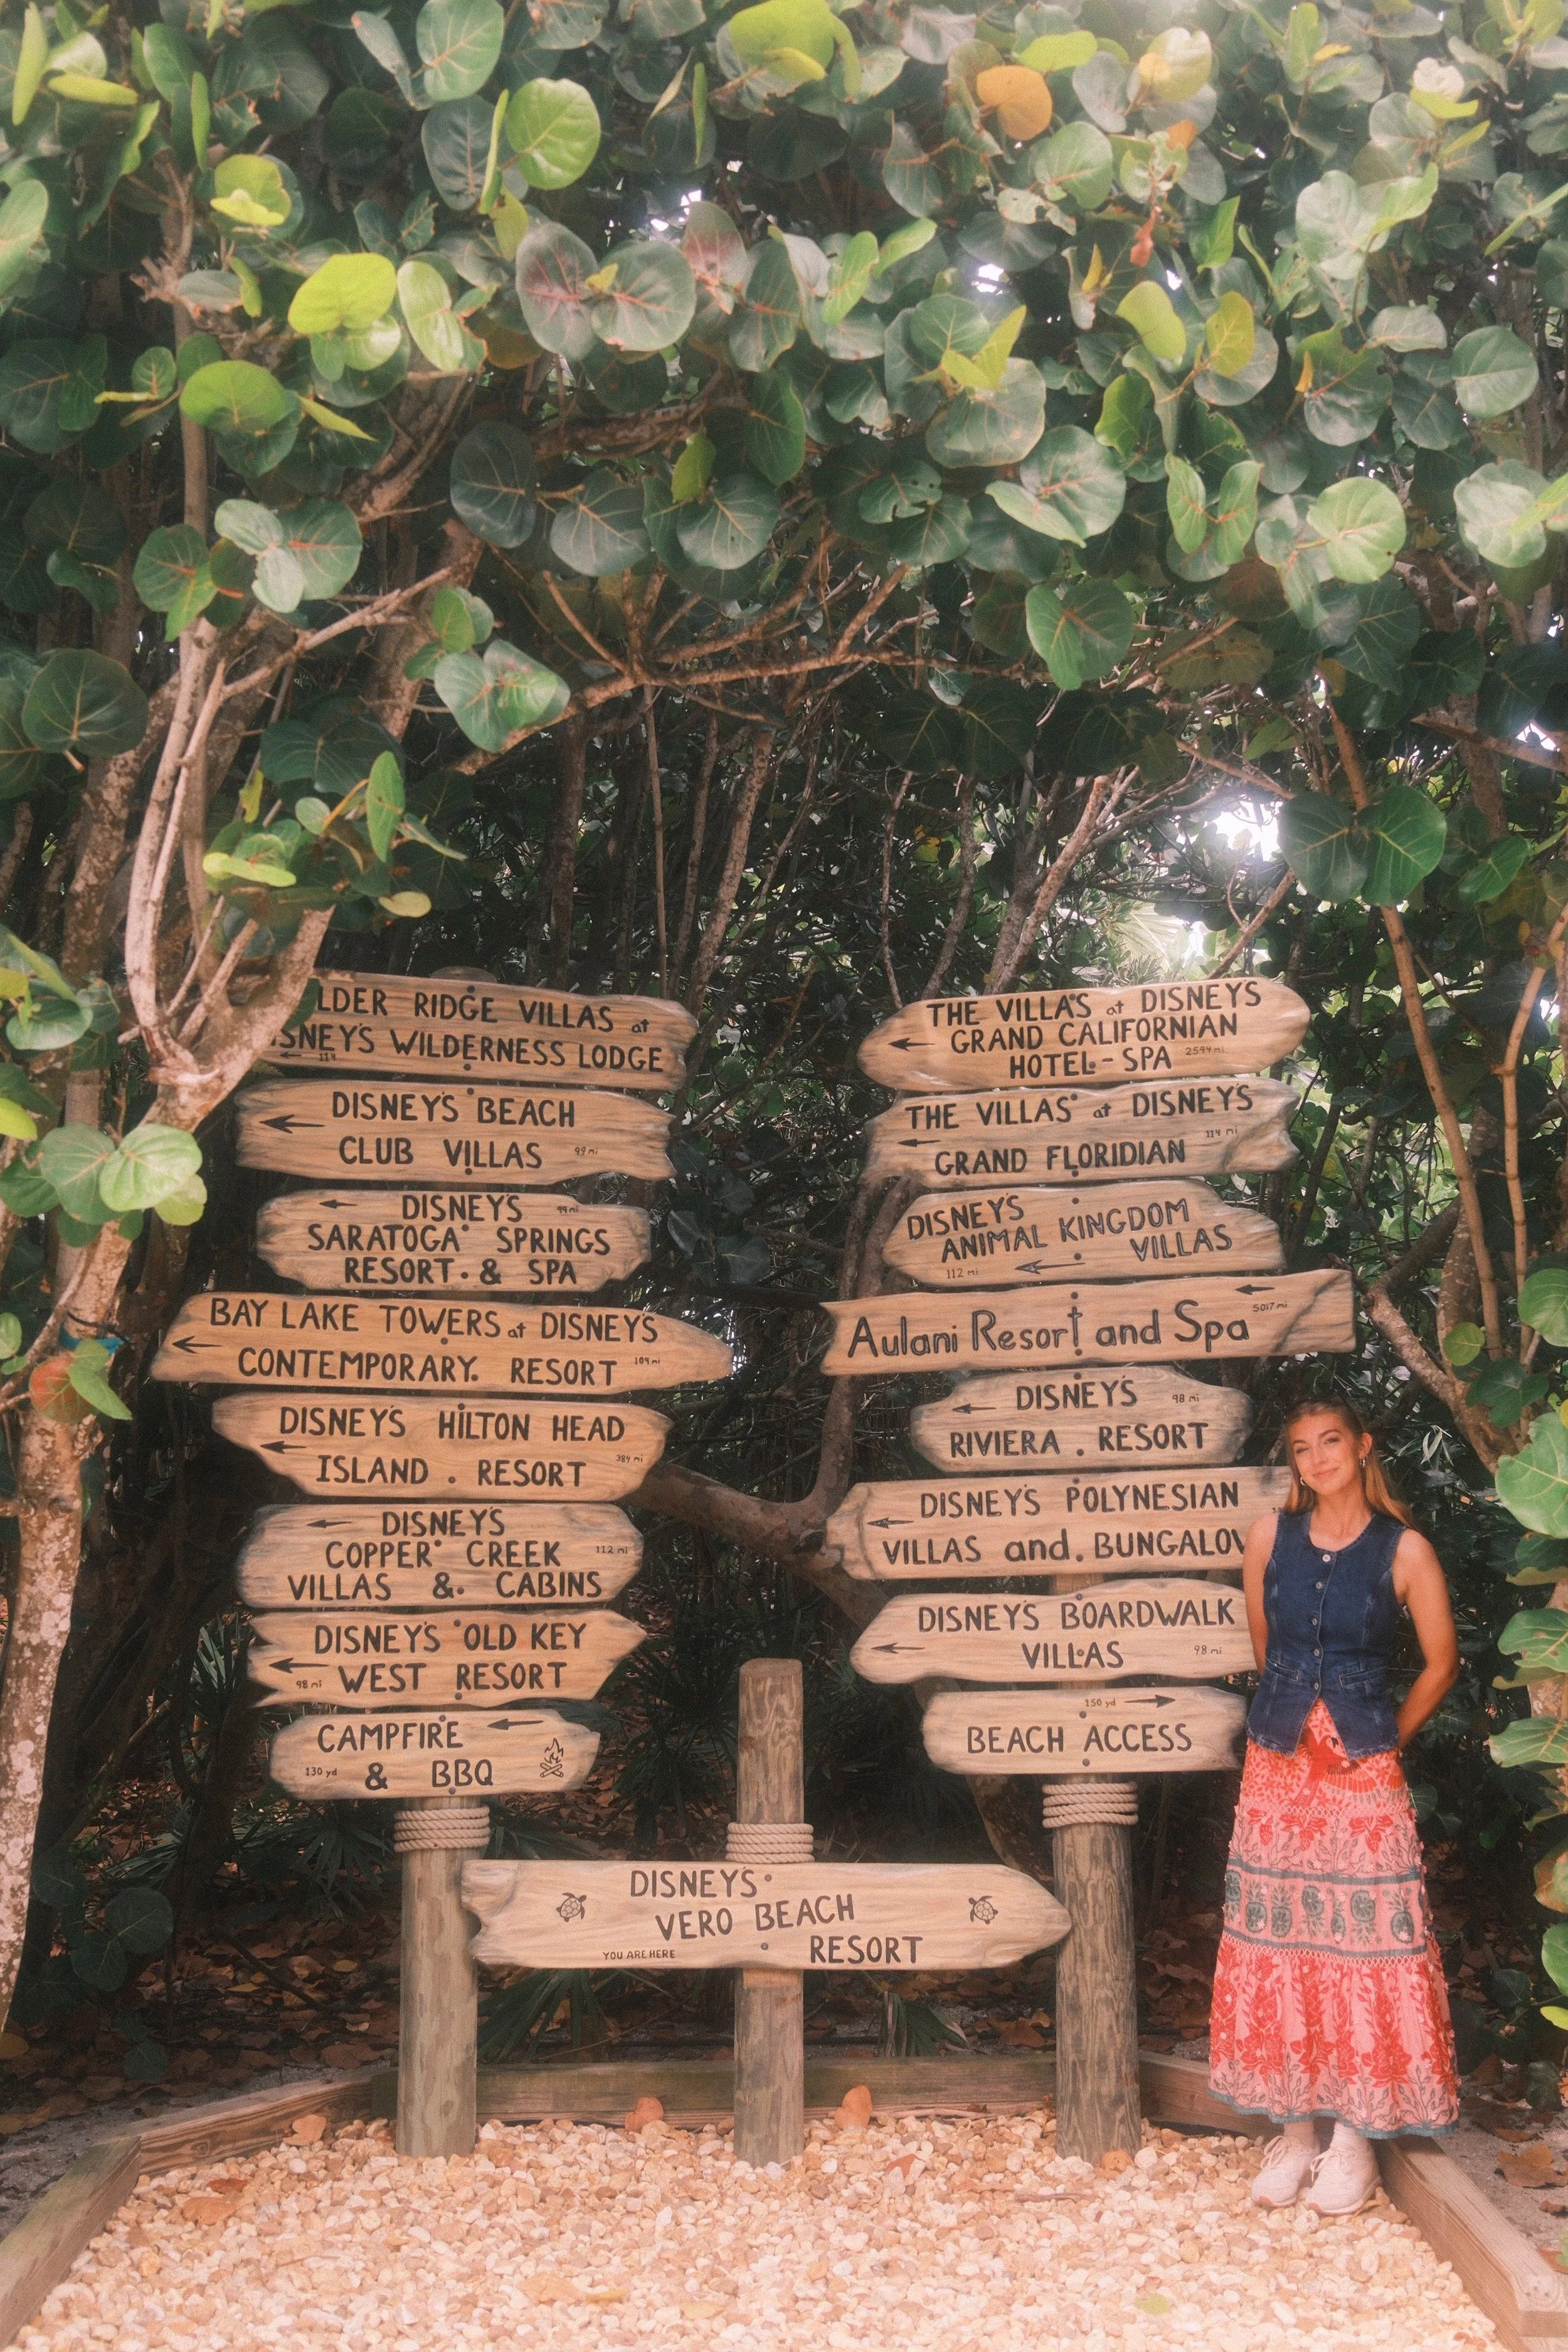 LDER RIDGE VILLAS at
SNEY'S WILDERNESS LODGE
114
DISNEY'S BEACH
CLUB VILLAS 99 mi
DISNEY'S 99 mi
SARATOGA SPRINGS
RESORT & SPA
BAY LAKE TOWERS at DISNEY'S
CONTEMPORARY RESORT 109 mi
DISNEY'S HILTON HEAD
ISLAND RESORT 384 mi
DISNEY'S
COPPER CREEK 112 mi
VILLAS & CABINS
DISNEY'S OLD KEY
98 mi WEST RESORT
CAMPFIRE
130 yd & BBQ
THE VILLAS at DISNEY'S
GRAND CALIFORNIAN
HOTEL - SPA 2594 mi
THE VILLAS at DISNEY'S
GRAND FLORIDIAN 114 mi
DISNEY'S
ANIMAL KINGDOM
VILLAS
112 mi
5017 mi
Aulani Resort and Spa
DISNEY'S 98 mi
RIVIERA RESORT
DISNEY'S POLYNESIAN
VILLAS and BUNGALOW
DISNEY'S BOARDWALK
VILLAS 98 mi
150 yd
BEACH ACCESS
DISNEY'S
VERO BEACH
YOU ARE HERE RESORT